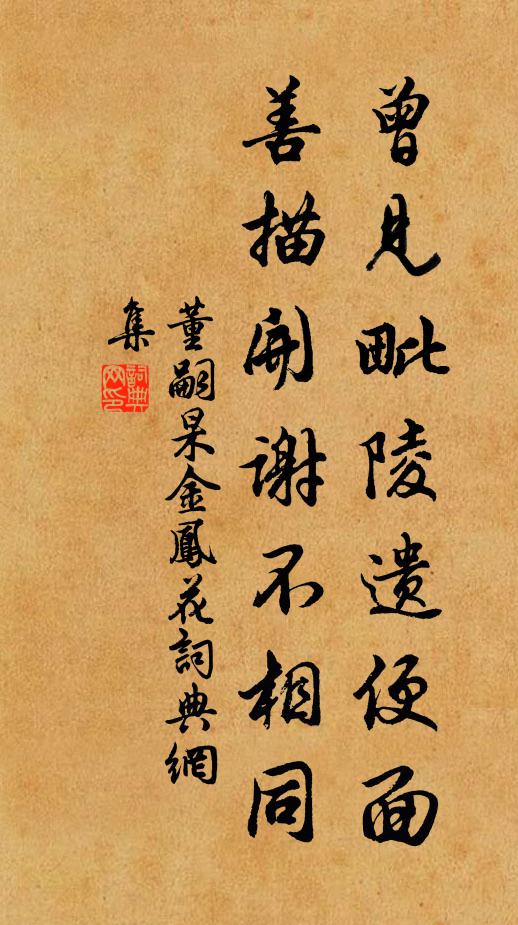 曾見毗陵遺便面
善描開謝不相同
董嗣杲金鳳花詞典網
集
詞典網印